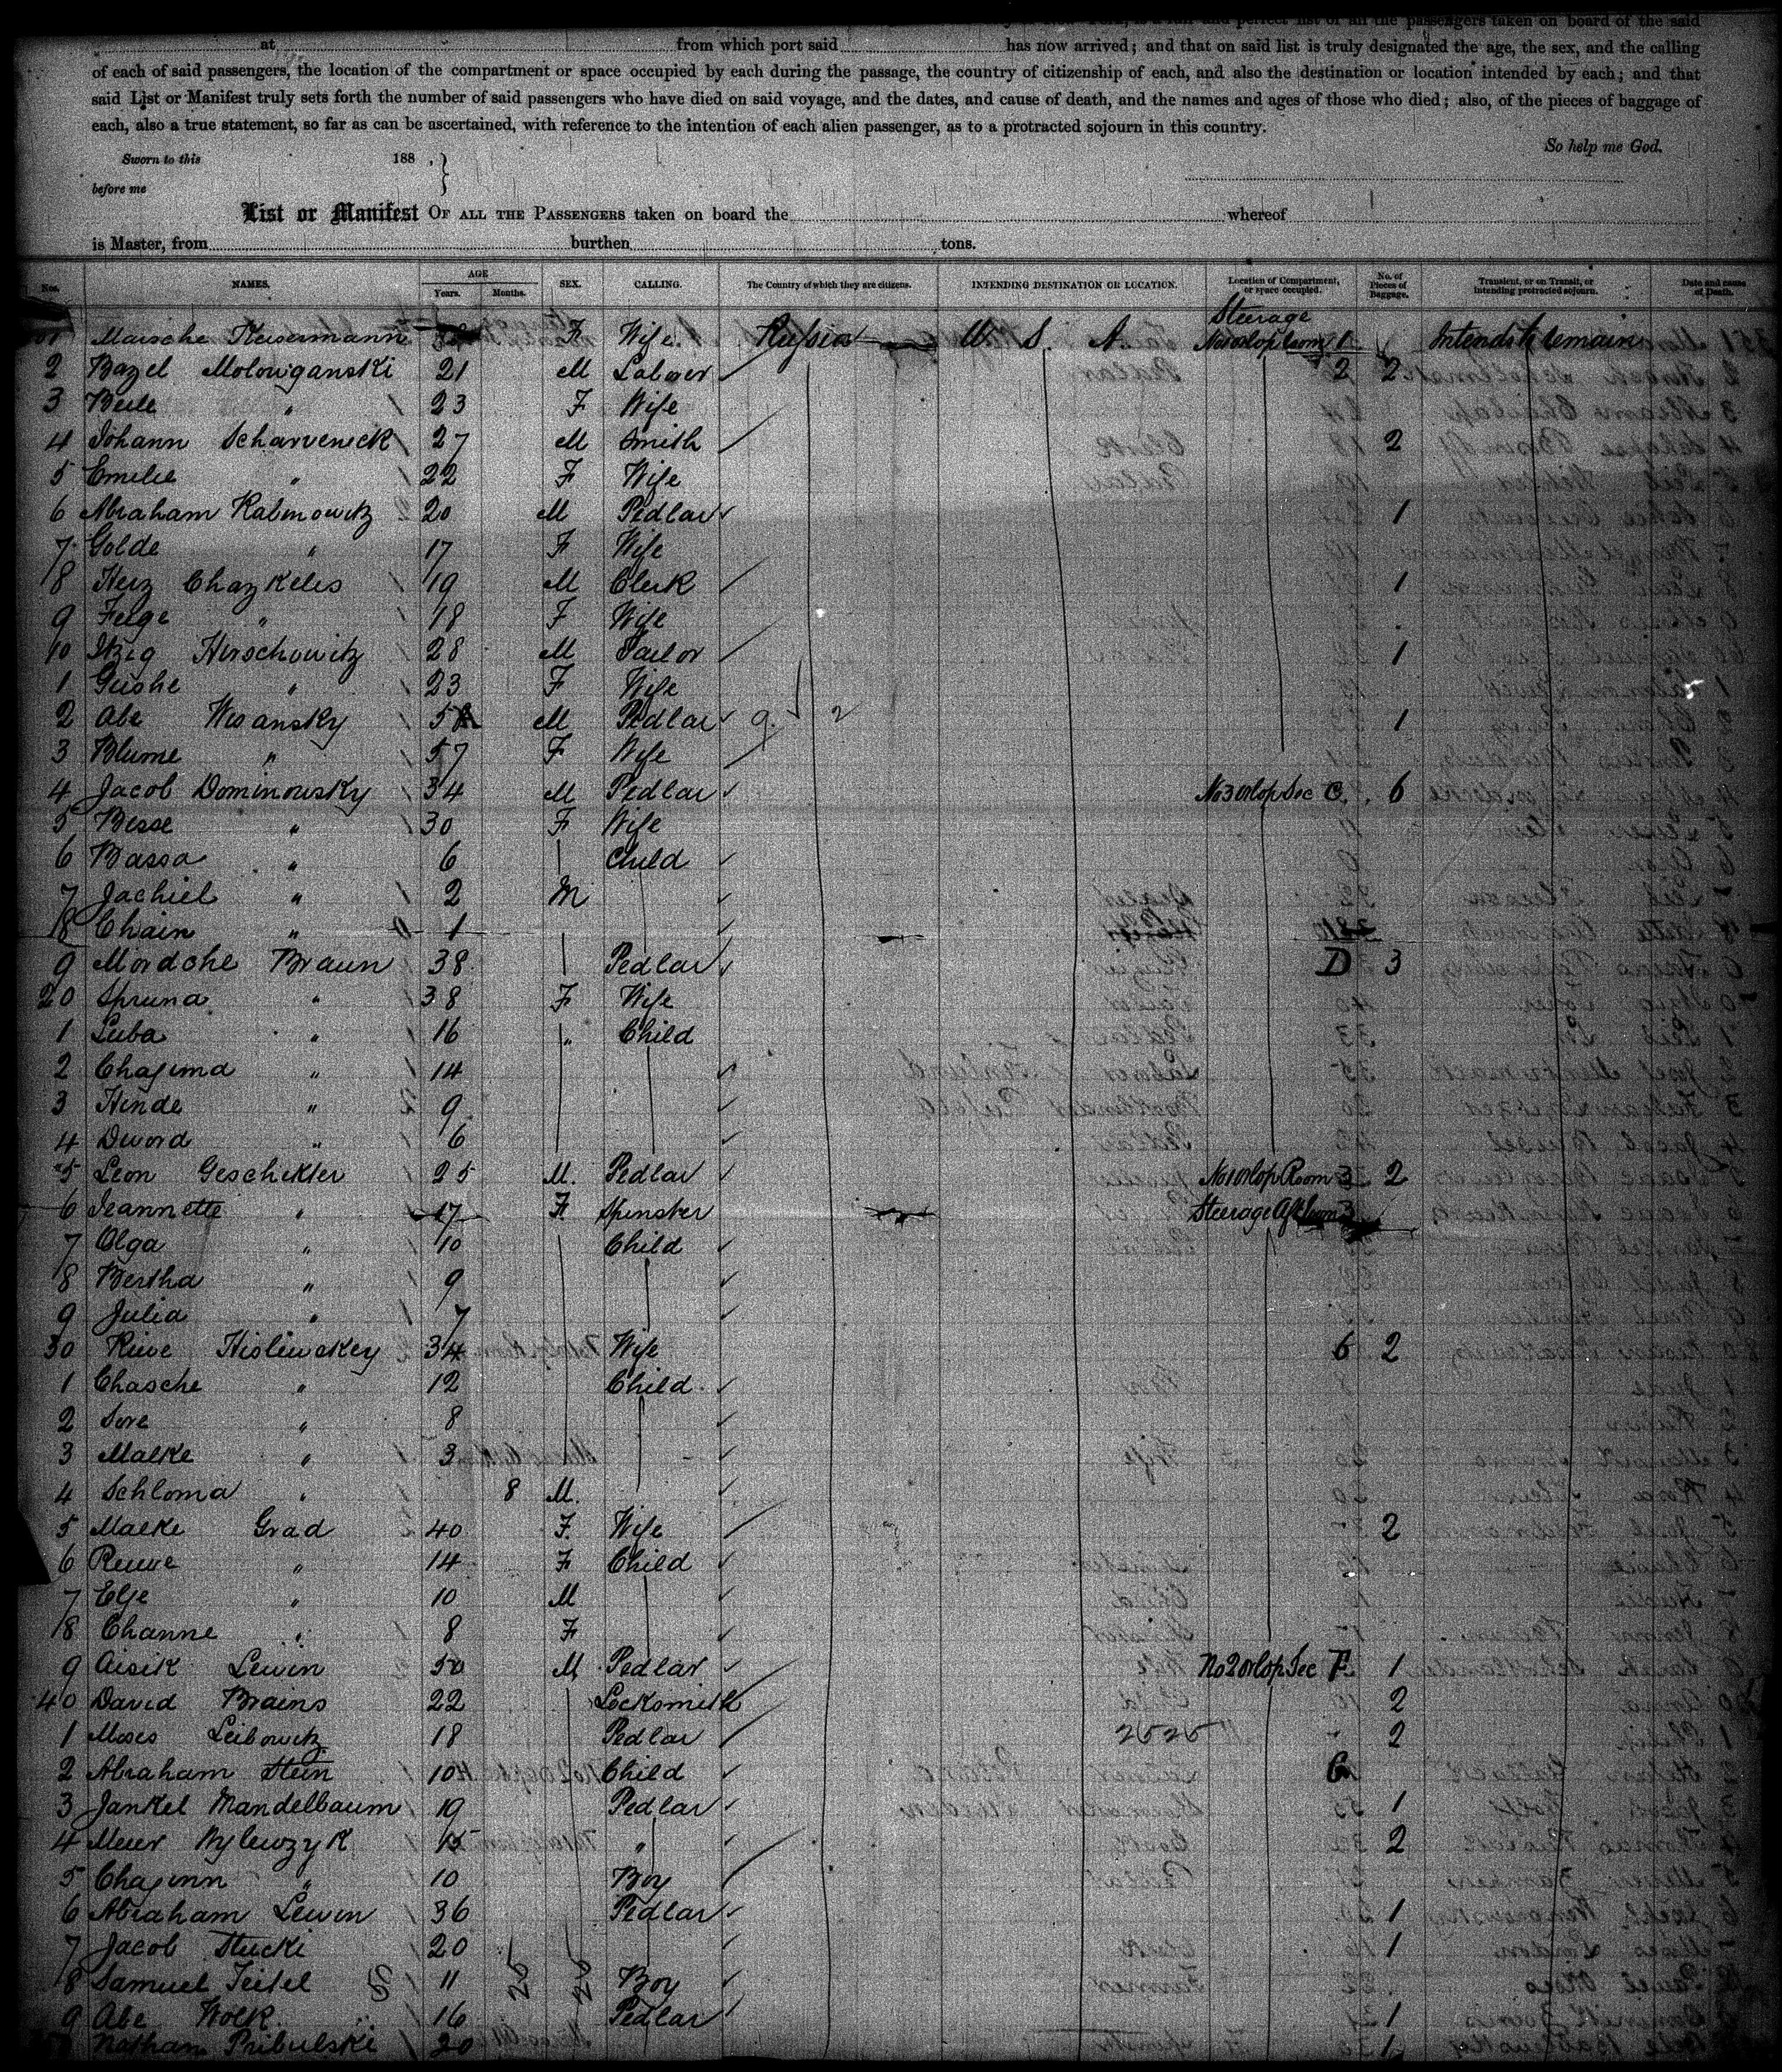 at from which port said has now arrived; and that on said list is truly designated the age, the sex, and the calling
of each of said passengers, the location of the compartment or space occupied by each during the passage, the country of citizenship of each, and also the destination or location intended by each; and that
said List or Manifest truly sets forth the number of said passengers who have died on said voyage, and the dates, and cause of death, and the names and ages of those who died; also, of the pieces of baggage of
each, also a true statement, so far as can be ascertained, with reference to the intention of each alien passenger, as to a protracted sojourn in this country.
So help me God.
Sworn to this 188 , }
before me
List or Manifest OF ALL THE PASSENGERS taken on board the whereof
is Master, from burthen tons.
Nos. NAMES. AGE Years. Months. SEX. CALLING. The Country of which they are citizens. INTENDING DESTINATION OR LOCATION. Location of Compartment, or space occupied. No. of Pieces of Baggage. Transient, or on Transit, or intending protracted sojourn. Date and cause of Death.
Steerage
Maische F Wife. Russia U. S. A. No 1 orlop Room 1 Intends to remain
2 Bazel Molowganski 21 M Labver 2 2
3 Beile " 23 F Wife
4 Johann Scharveneck 27 M Smith 2
5 Emelie " 22 F Wife
6 Abraham Rabinowitz 20 M Pedlar 1
7 Golde " 17 F Wife
8 Herz Chazkeles 19 M Clerk 1
9 Feige " 18 F Wife
10 Itzig Hirschowitz 28 M Tailor 1
1 Gushe " 23 F Wife
2 Abe Wisansky M Pedlar 1
3 Blume " 57 F Wife
4 Jacob Dominowsky 34 M Pedlar No 3 orlop Sec C. 6
5 Besse " 30 F Wife
6 Bassa " 6 Child
7 Jachiel " 2 M
8 Chain " 1
9 Mordche Braun 38 Pedlar D 3
20 Spruna " 38 F Wife
1 Luba " 16 " Child
2 Chajema " 14
3 Hinde " 9
4 Dword " 6
5 Leon Geschikter 25 M. Pedlar No 1 orlop Room 3 2
6 Jeannette " 17 F Spinster Steerage Aft
7 Olga " 10 Child
8 Bertha " 9
9 Julia " 7
30 Riwe Hislewskey 34 Wife 6 2
1 Chasche " 12 Child
2 Sore " 8
3 Malke " 3
4 Schloma " 8 M.
5 Malke Grad 40 F. Wife 2
6 Reuwe " 14 F Child
7 Elje " 10 M
8 Channe " 8 F
9 Aisik Lewin 50 M Pedlar No 2 orlop Sec F 1
40 David Brains 22 Locksmith 2
1 Moses Leibowitz 18 Pedlar 2525 2
2 Abraham Stein 10 Child G
3 Jankel Mandelbaum 19 Pedlar 1
4 Meier Wylewzyk 15 " 2
5 Chajinn " 10 Boy
6 Abraham Lewin 36 Pedlar 1
7 Jacob Stucki 20 1
8 Samuel Teitel 11 Boy
9 Abe Wolk 16 Pedlar 1
Nathan Pribulski 20 1